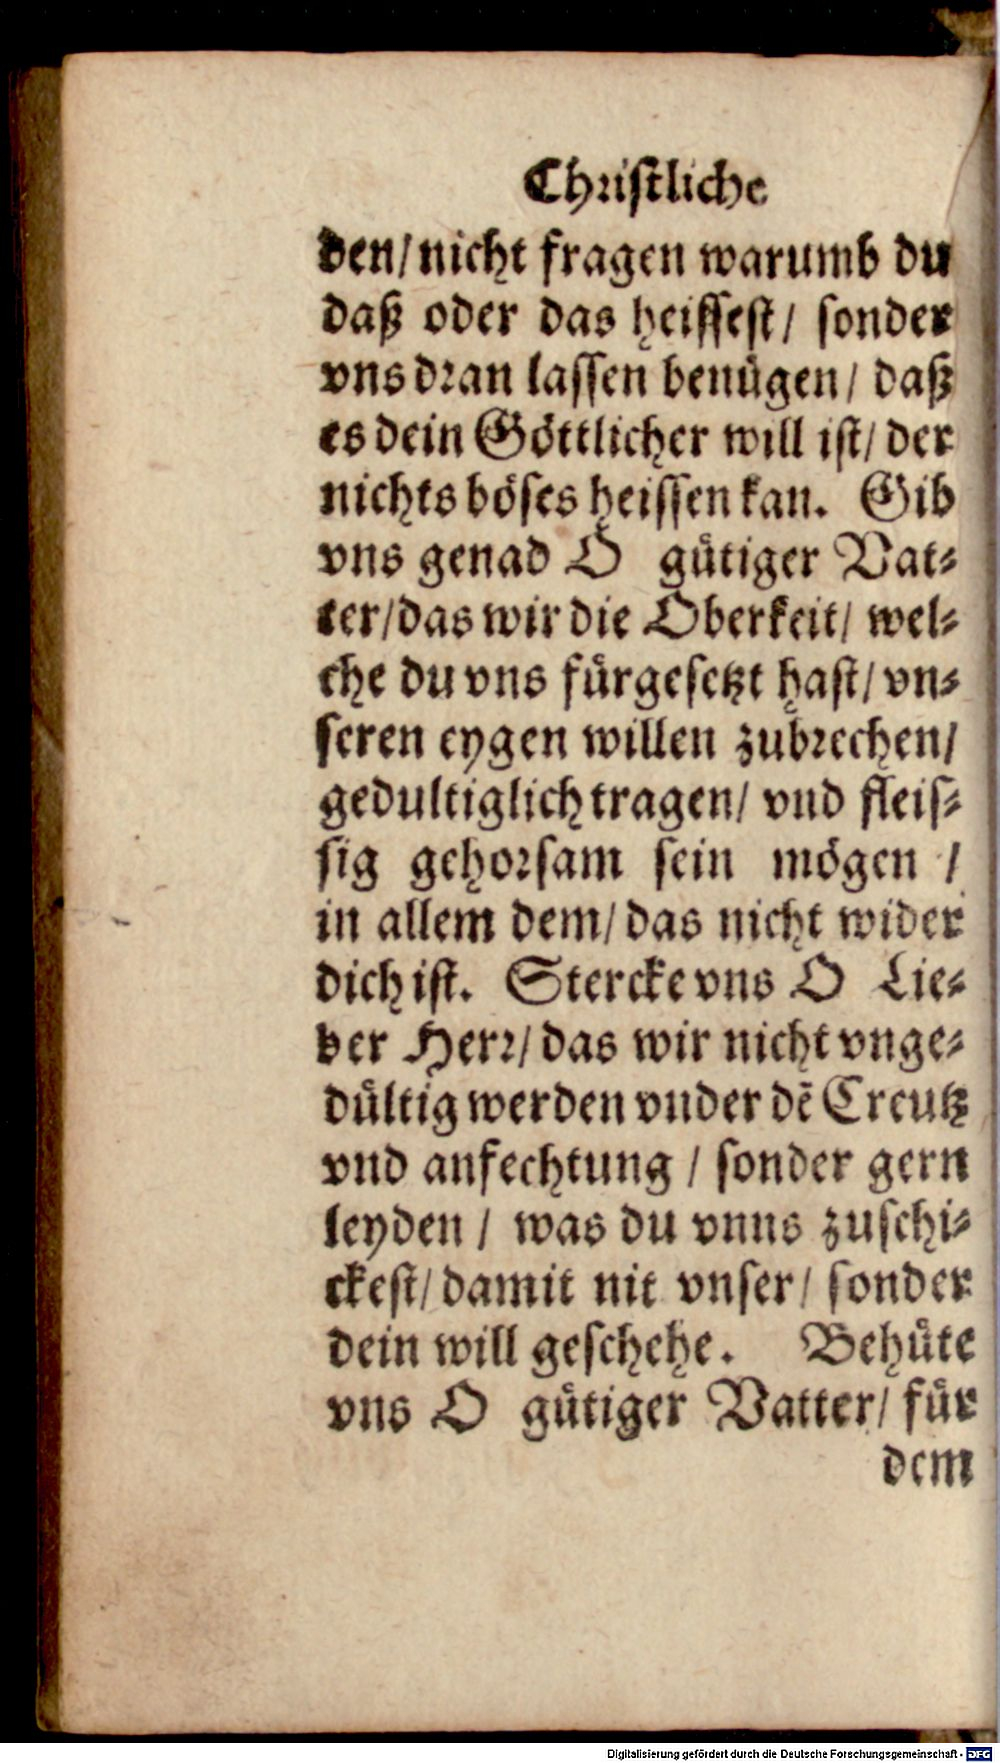 Christliche
den/ nicht fragen warumb du
daß oder das heissest/ sonder
vns dran lassen benügen/ daß
es dein Göttlicher will ist/ der
nichts böses heissen kan. Gib
vns genad O gütiger Vat-
ter/ das wir die Oberkeit/ wel-
che du vns fürgesetzt hast/ vn-
seren eygen willen zubrechen/
gedultiglich tragen/ vnd fleis-
sig gehorsam sein mögen /
in allem dem/ das nicht wider
dich ist. Stercke vns O Lie-
ber Herr/ das wir nicht vnge-
dültig werden vnder dē Creutz
vnd anfechtung / sonder gern
leyden / was du vnns zuschi-
ckest/ damit nit vnser/ sonder
dein will geschehe. Behüte
vns O gütiger Vatter/ für
dem
Digitalisierung gefördert durch die Deutsche Forschungsgemeinschaft - DFG